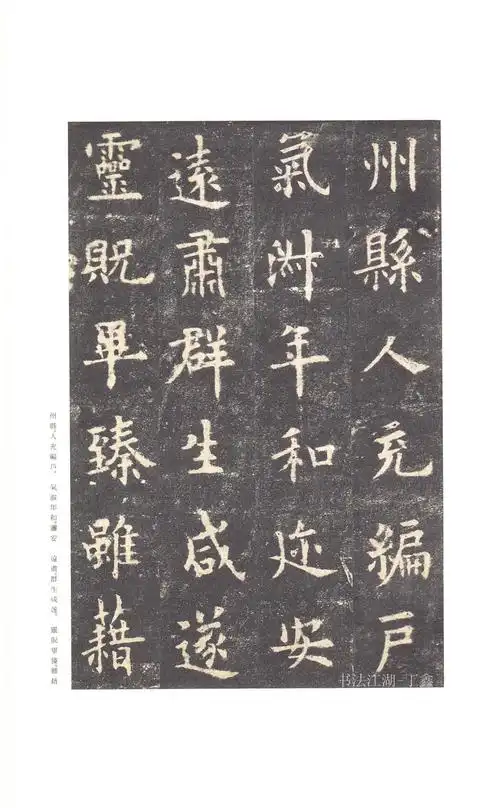 州縣人充編戶
氣淑年和迩安
遠肅群生咸遂
靈貺畢臻雖藉
州縣人充編戶。氣淑年和邇安 遠肅群生咸遂。靈貺畢臻雖藉
书法江湖-丁鑫